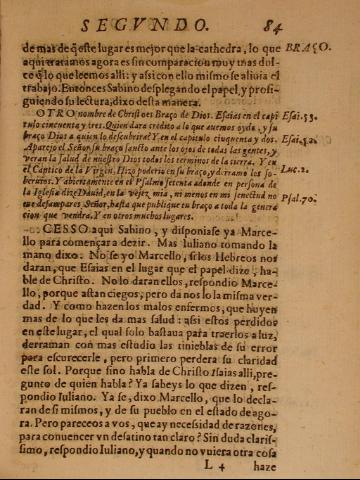 SEGVNDO. 84
de mas de q̃ este lugar es mejor que la cathedra, lo que BRAÇO.
aqui tratamos agora es sin comparacion muy mas dul-
ce q̃ lo que leemos alli: y assi con ello mismo se aliuia el
trabajo. Entonces Sabino desplegando el papel, y prosi-
guiendo su lectura, dixo desta manera.
OTRO nombre de Christo es Braço de Dios. Esaias en el capi Esai. 53.
tulo cincuenta y tres. Quien dara credito a lo que auemos oydo, y su
braço Dios a quien lo descubrira? Y en el capitulo cinquenta y dos. Esai. 52.
Aparejo el Señor su braço sancto ante los ojos de todas las gentes, y
veran la Salud de nuestro Dios todos los terminos de la tierra. Y en
el Cantico de la Virgen. Hizo poderio en su braço, y derramo los so- Luc. 2.
beruios. Y abiertamente en el Psalmo setenta adonde en persona de
la Iglesia dize Dauid, en la vejez mia, ni menos en mi senectud no
me desampares Señor, hasta que publique tu braço a toda la genera Psal. 70.
cion que vendra. Y en otros muchos lugares.
CESSO aqui Sabino, y disponiase ya Marce-
llo para començar a dezir. Mas Iuliano tomando la
mano dixo. No se yo Marcello, si los Hebreos nos
daran, que Esaias en el lugar que el papel dize, ha-
ble de Christo. No lo daran ellos, respondio Marce-
llo, porque astan ciegos, pero da nos lo la misma ver-
dad. Y como hazen los malos enfermos, que huyen
mas de lo que les da mas salud: assi estos perdidos
en este lugar, el qual solo bastaua para traerlos a luz,
derraman con mas estudio las tinieblas de su error
para escurecerle, pero primero perdera su claridad
este sol. Porque sino habla de Christo Esaias alli, pre-
gunto de quien habla? Ya sabeys lo que dizen, res-
pondio Iuliano. Ya se, dixo Marcello, que lo decla-
ran de si mismos, y de su pueblo en el estado de ago-
ra. Pero pareceos a vos, que ay necessidad de razones,
para conuencer vn desatino tan claro? Sin duda claris-
simo, respondio Iuliano, y quando no vuiera otra cosa
L 4 haze